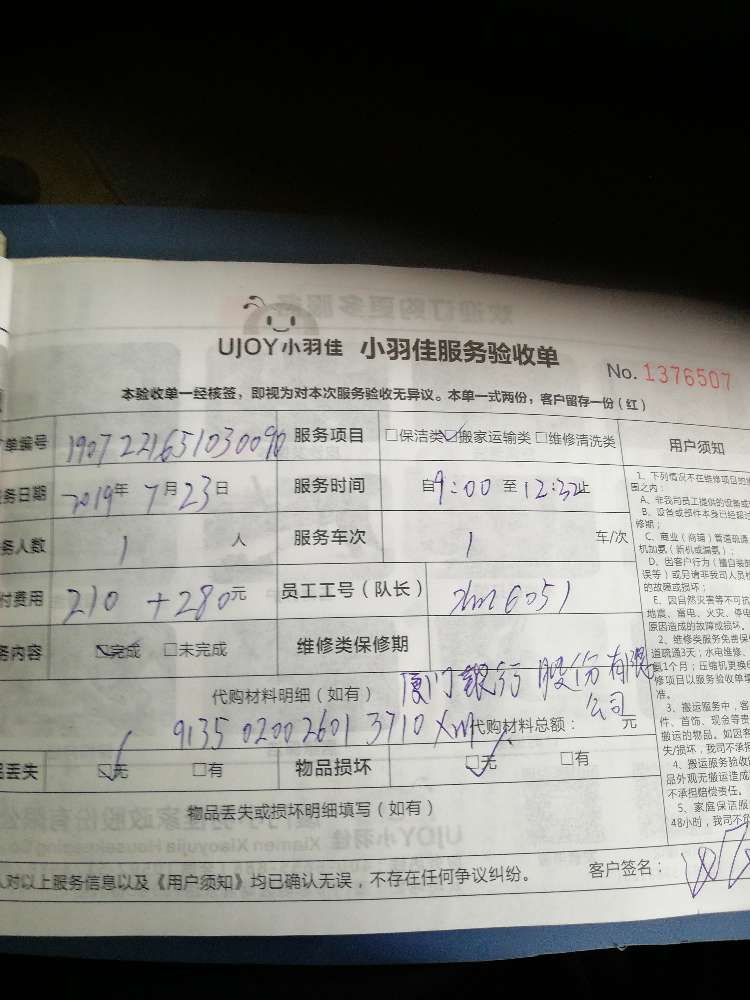 UJOY小羽佳 小羽佳服务验收单
No. 1376507
本验收单一经核签，即视为对本次服务验收无异议。本单一式两份，客户留存一份（红）
单编号 190722165103009 服务项目 □保洁类☑搬家运输类□维修清洗类
务日期 2019年7月23日 服务时间 自9:00至12:32止
务人数 1人 服务车次 1 车/次
付费用 210+280元 员工工号（队长） xm6051
务内容 ☑完成 □未完成 维修类保修期
代购材料明细（如有） 厦门银行股份有限公司
9135020026013710XM 代购材料总额： 元
丢失 ☑无 □有 物品损坏 ☑无 □有
物品丢失或损坏明细填写（如有）
人对以上服务信息以及《用户须知》均已确认无误，不存在任何争议纠纷。 客户签名：
用户须知
1、下列情况不在维修项目
围之内：
A、非我司员工提供的设备或
B、设备或部件本身已经超过
修期；
C、商业（商铺）管道疏通
机加氨（新机或漏氨）；
D、因客户行为（擅自装
误等）或另请非我司人员
的故障或损坏；
E、因自然灾害等不可抗
地震、雷电、火灾、停电
原因造成的故障或损坏。
2、维修类服务免费保
道疏通3天；水电维修、
氨1个月；压缩机更换
修项目以服务验收单
准。
3、搬运服务中，客
件、首饰、现金等贵
搬运的物品。如因客
失/损坏，我司不承担
4、搬运服务验收
品外观无搬运造成
不承担赔偿责任。
5、家庭保洁服
48小时，我司不